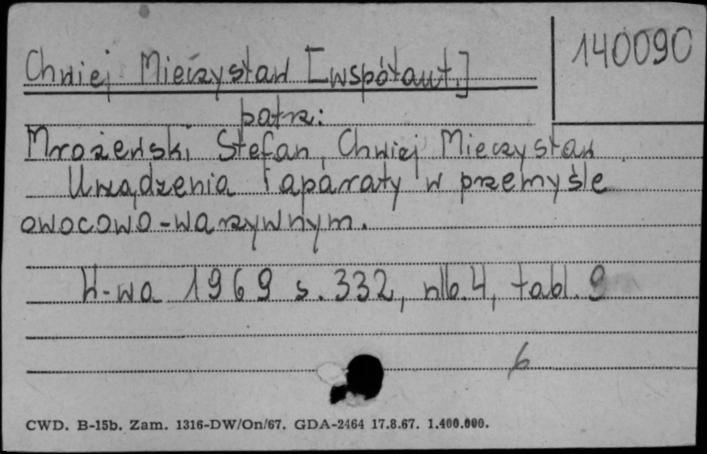 140090
Chwiej Mieczysław [współaut.]
patrz:
Mrożewski Stefan, Chwiej Mieczysław
Urządzenia i aparaty w przemyśle
owocowo-warzywnym.
W-wa 1969 s. 332, nlb. 4, tabl. 9
6
CWD. B-15b. Zam. 1316-DW/On/67. GDA-2464 17.8.67. 1.400.000.